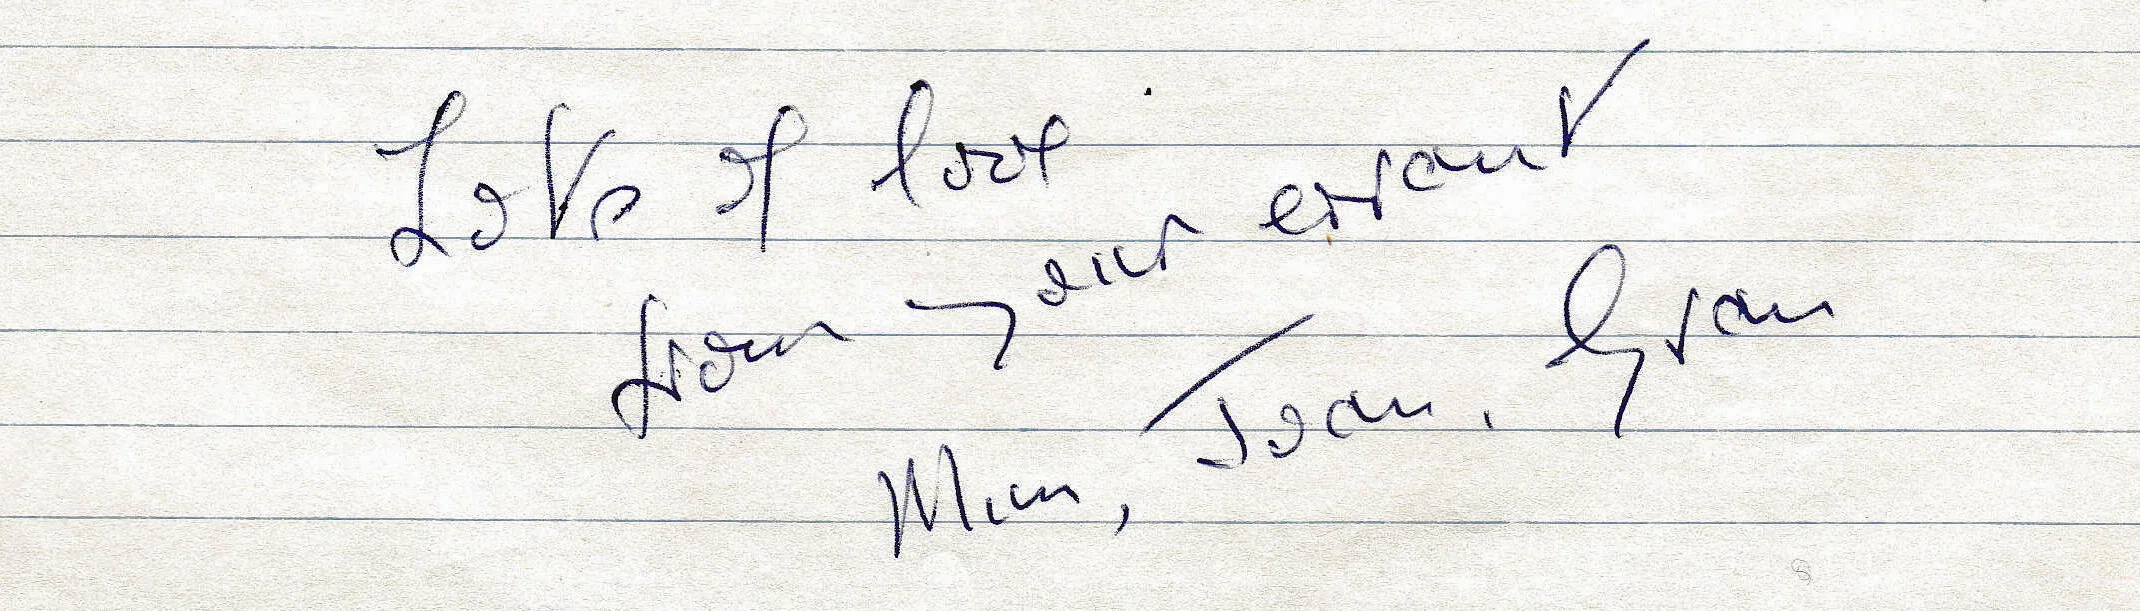 Lots of love
from your errant
Mum, Joan, Gran